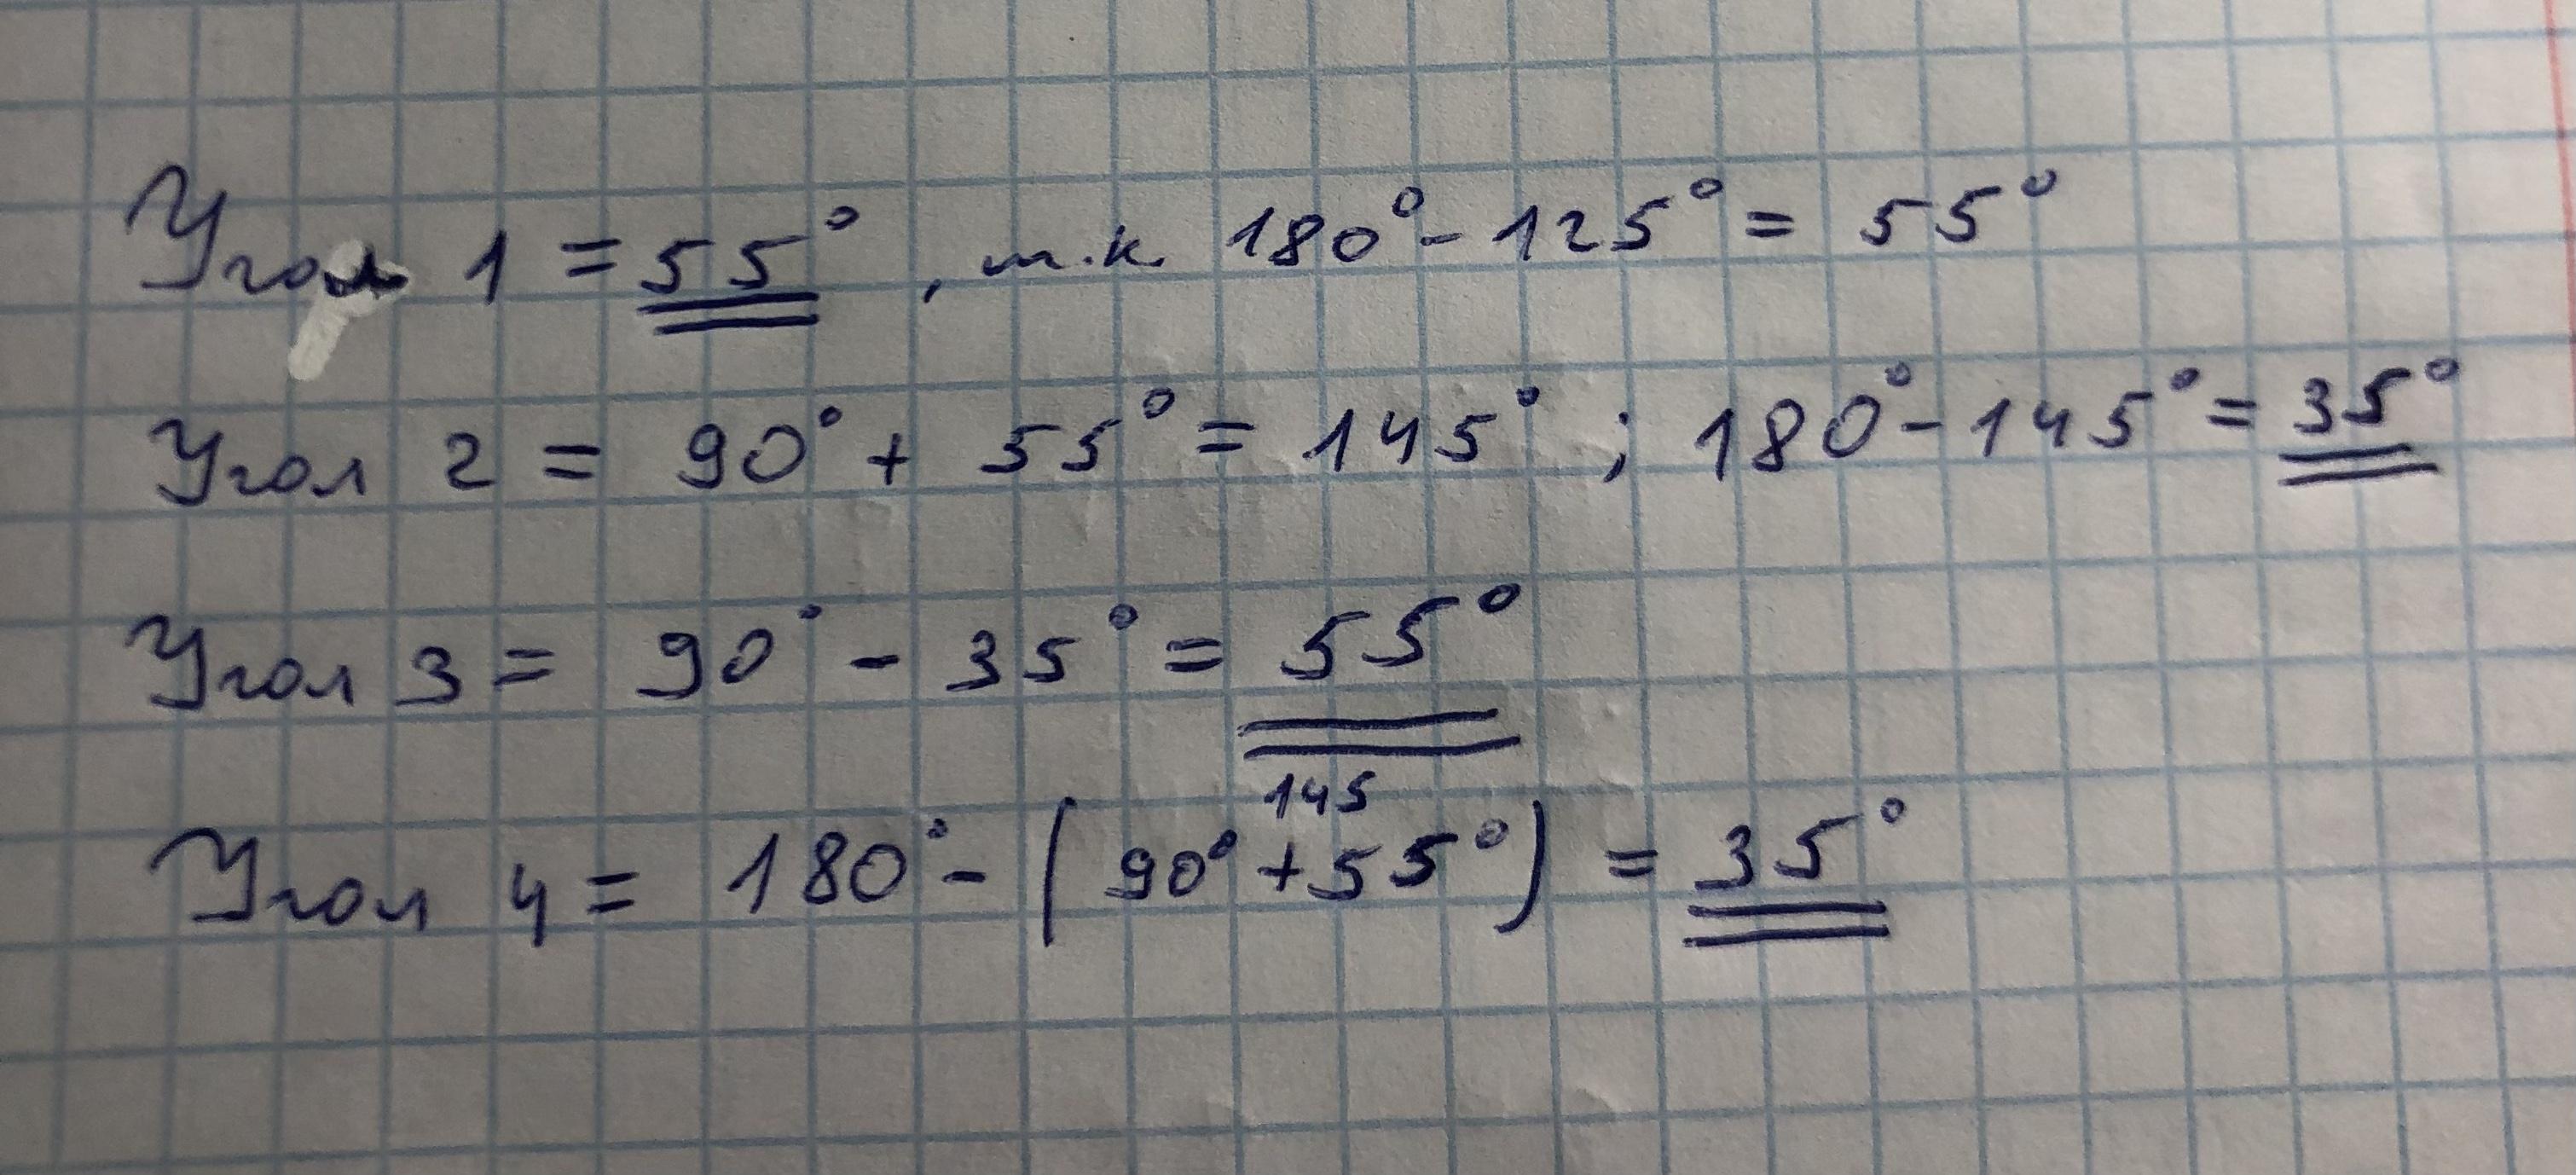 Угол 1 = 55°, т.к. 180° - 125° = 55°
Угол 2 = 90° + 55° = 145° ; 180° - 145° = 35°
Угол 3 = 90° - 35° = 55°
145
Угол 4 = 180° - (90° + 55°) = 35°